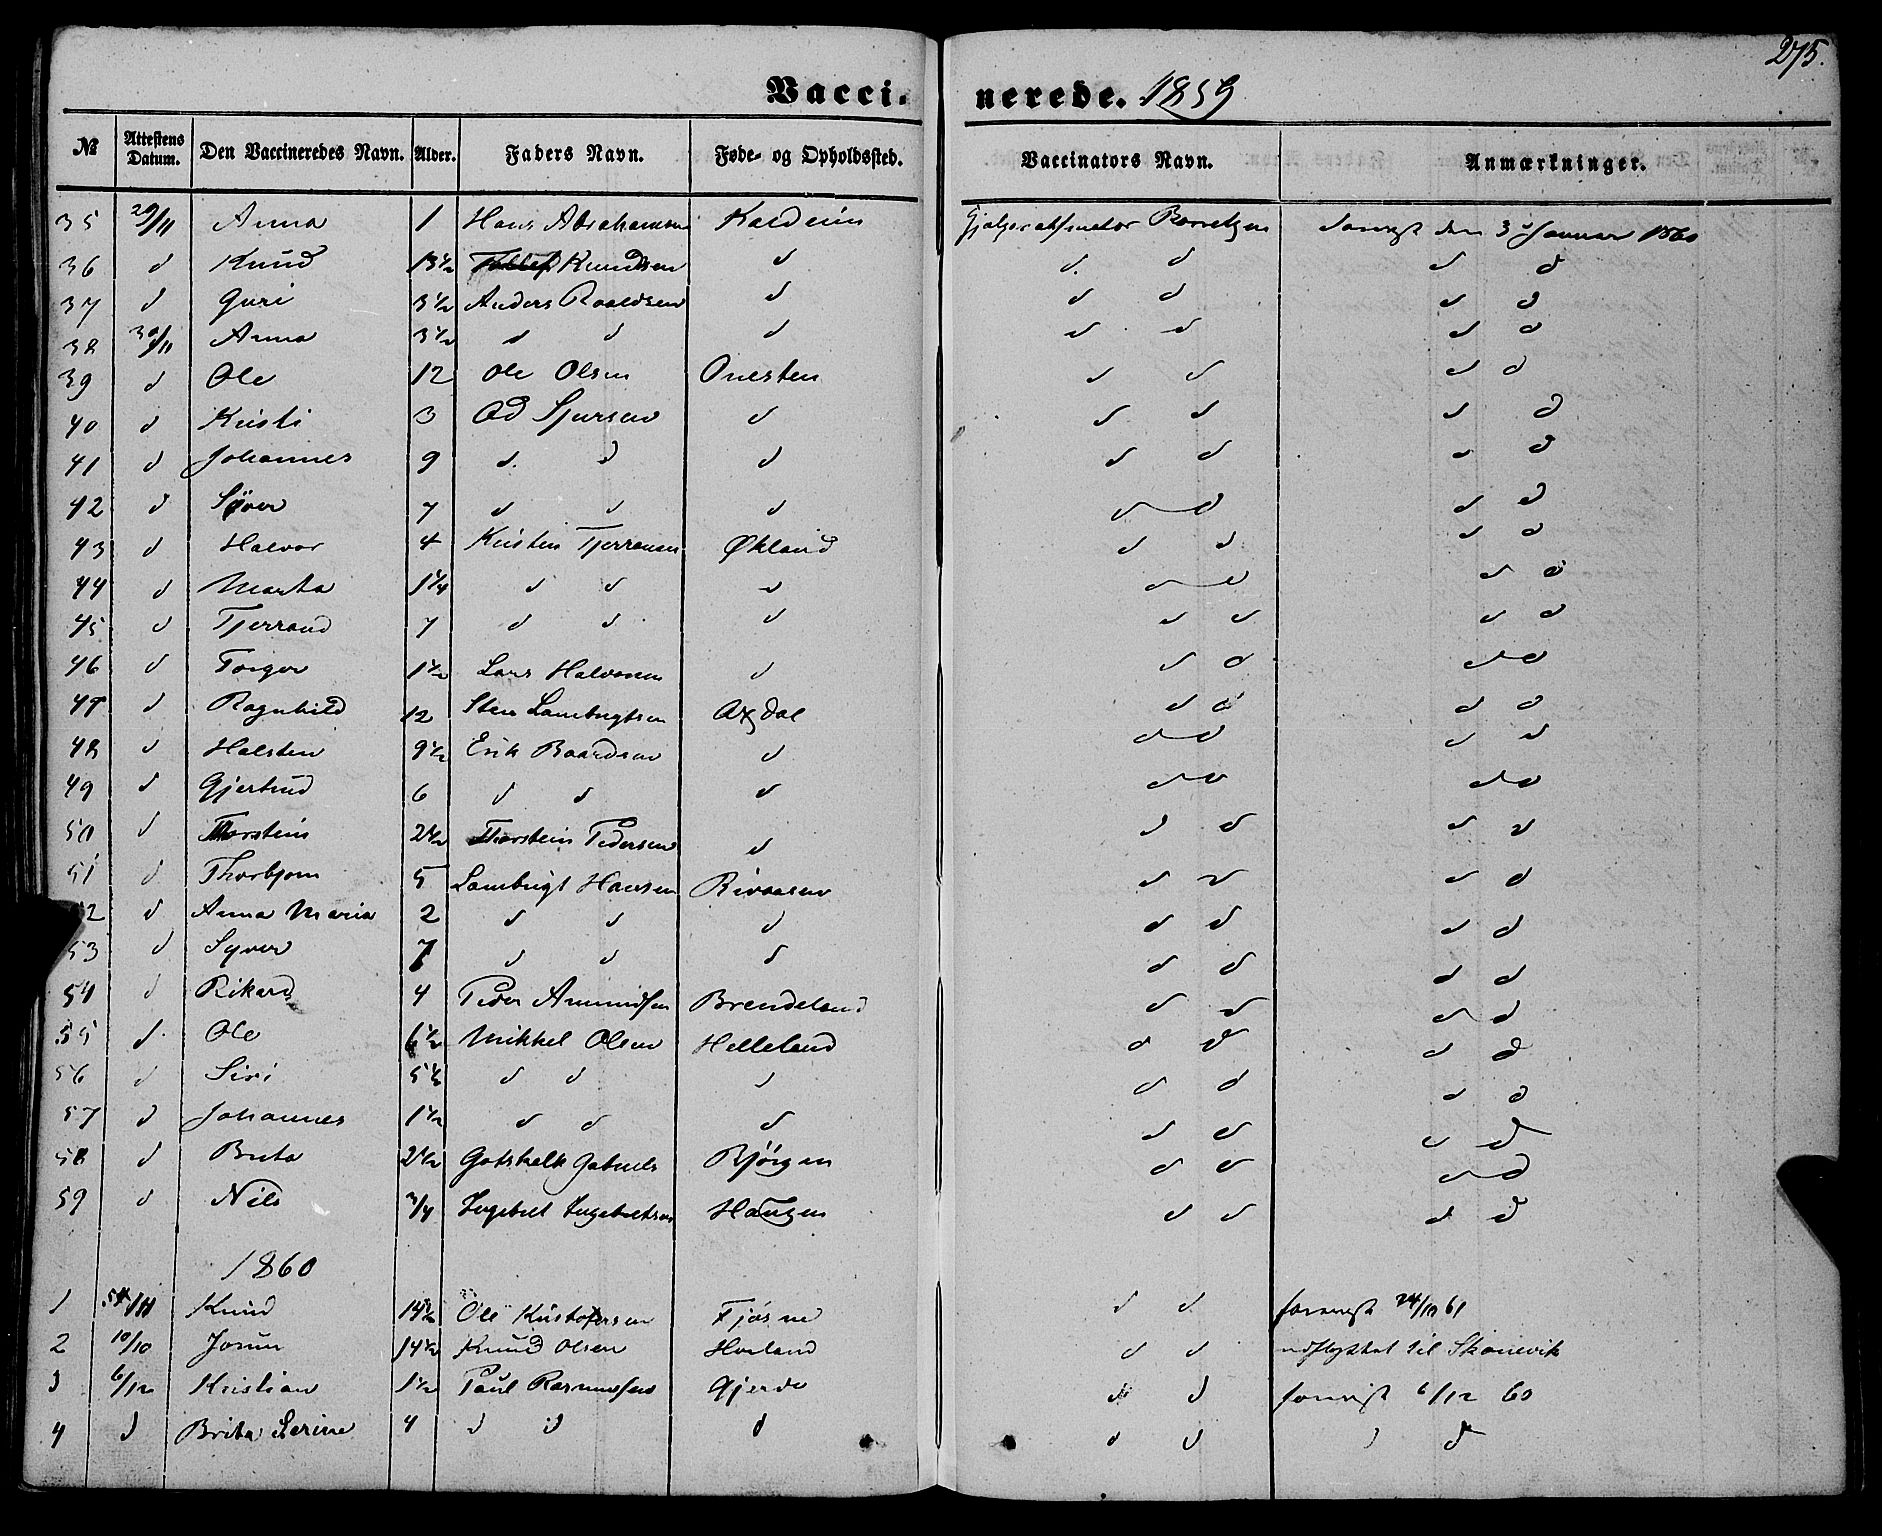 275.
Vaccinerede. 1859
№ Attestens Datum. Den Vaccineredes Navn. Alder. Faders Navn. Føde- og Opholdssted. Vaccinators Navn. Anmærkninger.
35 29/11 Anna 1 Hans Abrahamsen Kaldeim den 3 Januar 1860
36 d Knud 13½ Knudsen d d d d d
37 d Guri 3½ Anders Roaldsen d d d d d
38 30/11 Anna 3½ d d d d d d d
39 d Ole 12 Ole Olsen Onesten d d d d
40 d Kristi 3 Od Sjursen d d d d d
41 d Johannes 9 d d d d d d d
42 d Syver 7 d d d d d d d
43 d Halvor 4 Kristen Tjerransen Økland d d d d
44 d Marta 1¼ d d d d d d d
45 d Tjerrand 7 d d d d d d d
46 d Torger 1½ Lars Halvorsen d d d d d
47 d Ragnhild 12 Sten Lambregtsen Axdal d d d d
48 d Halsten 9½ Erik Baardsen d d d d d
49 d Gjertrud 6 d d d d d d d
50 d Thorstein 2½ Thorstein Pedersen d d d d d
51 d Thorbjørn 5 Lambrigt Hansen d d d d
52 d Anna Maria 2 d d d d d d d
53 d Syver 7 d d d d d d d
54 d Rikard 4 Peder Amundsen Brendeland d d d d
55 d Ole 6½ Mikkel Olsen Helleland d d d d
56 d Siri 5½ d d d d d d d
57 d Johannes 1½ d d d d d d d
58 d Brita 2½ Gotskalk Gabriels Bjørgen d d d d
59 d Nils 3/4 Ingebret Ingebretsen Haugen d d d d
1860
1 Knud 14½ Ole Kristofersen Fjøsne d d forevist 24/10 61
2 10/10 Jorun 14½ Knud Olsen Hovland d d udflyttet til Skonevik
3 6/12 Kristian 1½ Paul Rasmussen Gjerde d d forevist 6/12 60
4 d Brita Serine 4 d d d d d d d